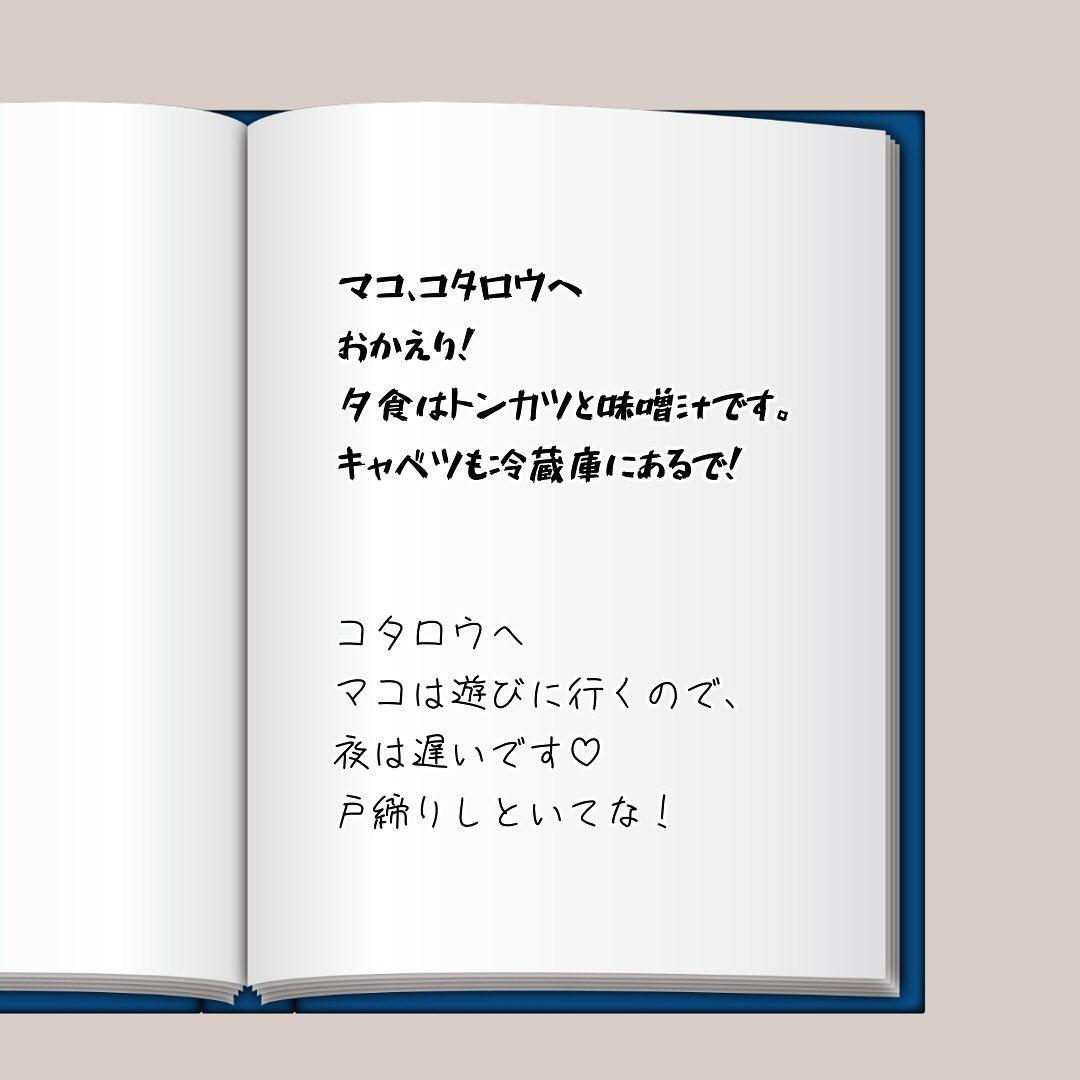 マコ、コタロウへ
おかえり!
夕食はトンカツと味噌汁です。
キャベツも冷蔵庫にあるで!
コタロウへ
マコは遊びに行くので、
夜は遅いです♡
戸締りしといてな!